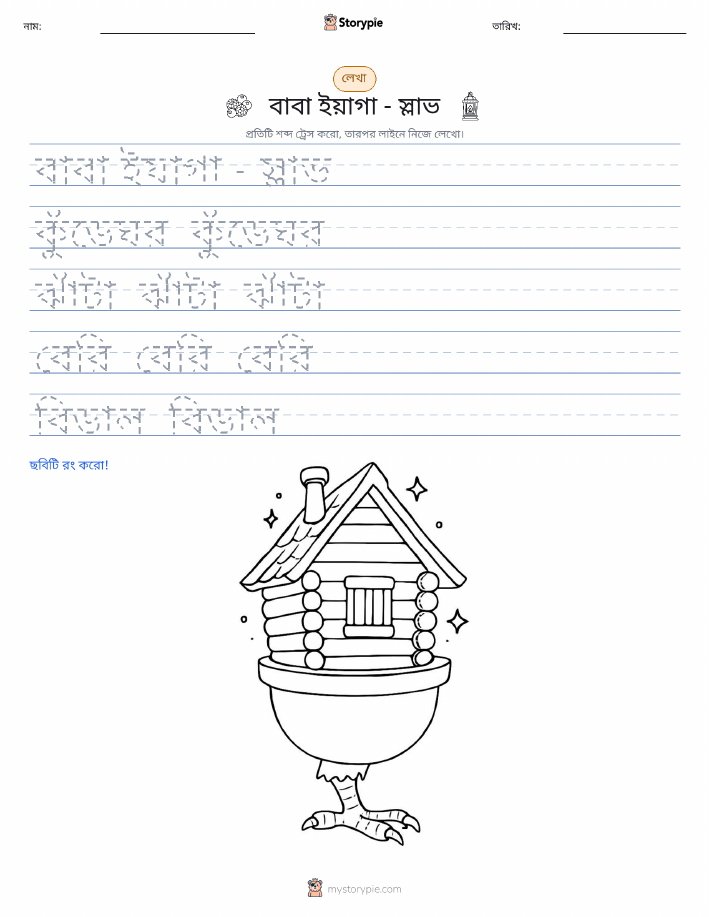 নাম:
Storypie
তারিখ:
লেখা
বাবা ইয়াগা - স্লাভ
প্রতিটি শব্দ ট্রেস করো, তারপর লাইনে নিজে লেখো।
বাবা ইয়াগা - স্লাভ
কুঁড়েঘর কুঁড়েঘর
ঝাঁটা ঝাঁটা ঝাঁটা
বেরি বেরি বেরি
বিড়াল বিড়াল
ছবিটি রং করো!
mystorypie.com